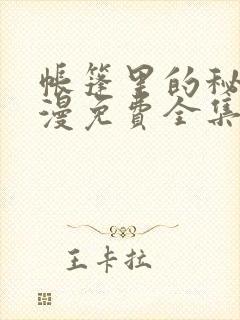 帐篷里的秘
漫免费全集
王卡拉